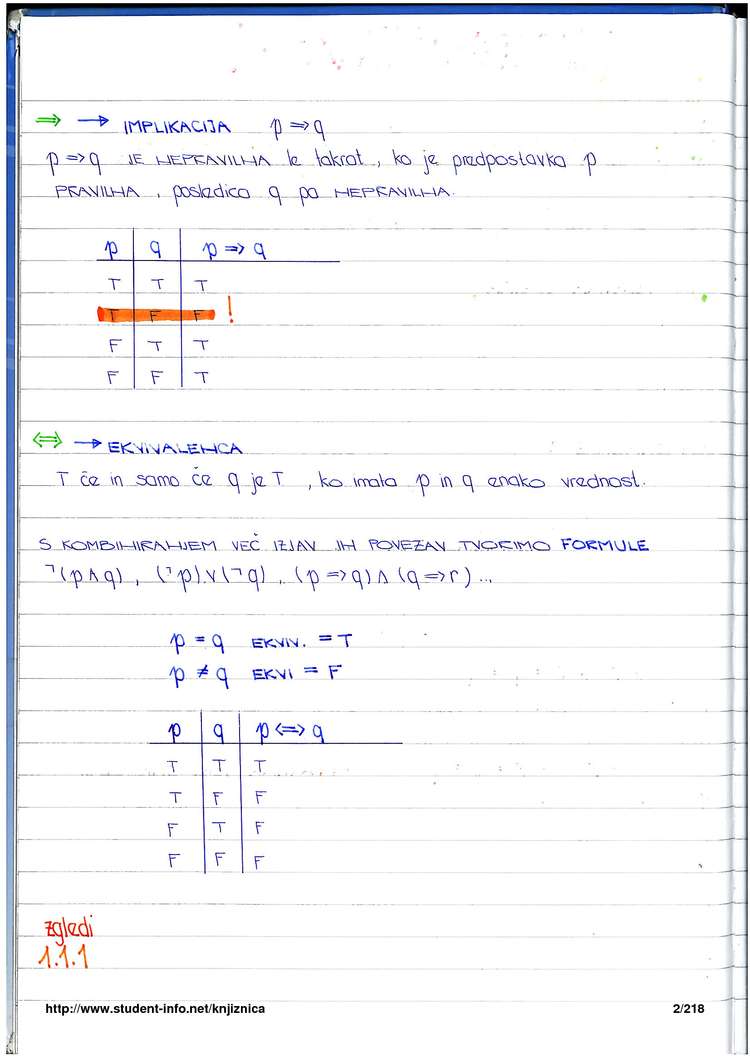 ⇒ → IMPLIKACIJA p ⇒ q
p ⇒ q JE NEPRAVILNA le takrat, ko je predpostavka p
PRAVILNA, posledica q pa NEPRAVILNA.
p q p ⇒ q
T T T
T F F !
F T T
F F T
⇔ → EKVIVALENCA
T če in samo če q je T, ko imata p in q enako vrednost.
S KOMBINIRANJEM VEČ IZJAV IN POVEZAV TVORIMO FORMULE
¬(p∧q), (¬p)∨(¬q), (p⇒q)∧(q⇒r)...
p = q EKVIV. = T
p ≠ q EKVI = F
p q p ⇔ q
T T T
T F F
F T F
F F F
zgledi
1.1.1
http://www.student-info.net/knjiznica 2/218